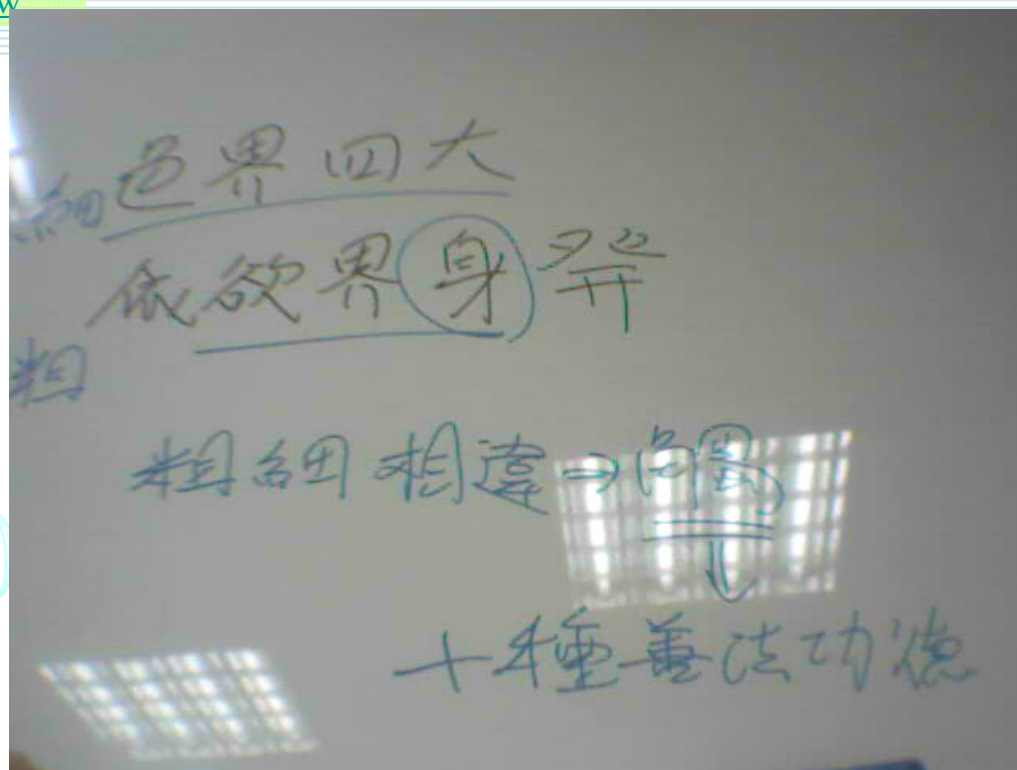 細色界四大
依欲界身発
粗
粗細相違→觸
↓
十種善法功德